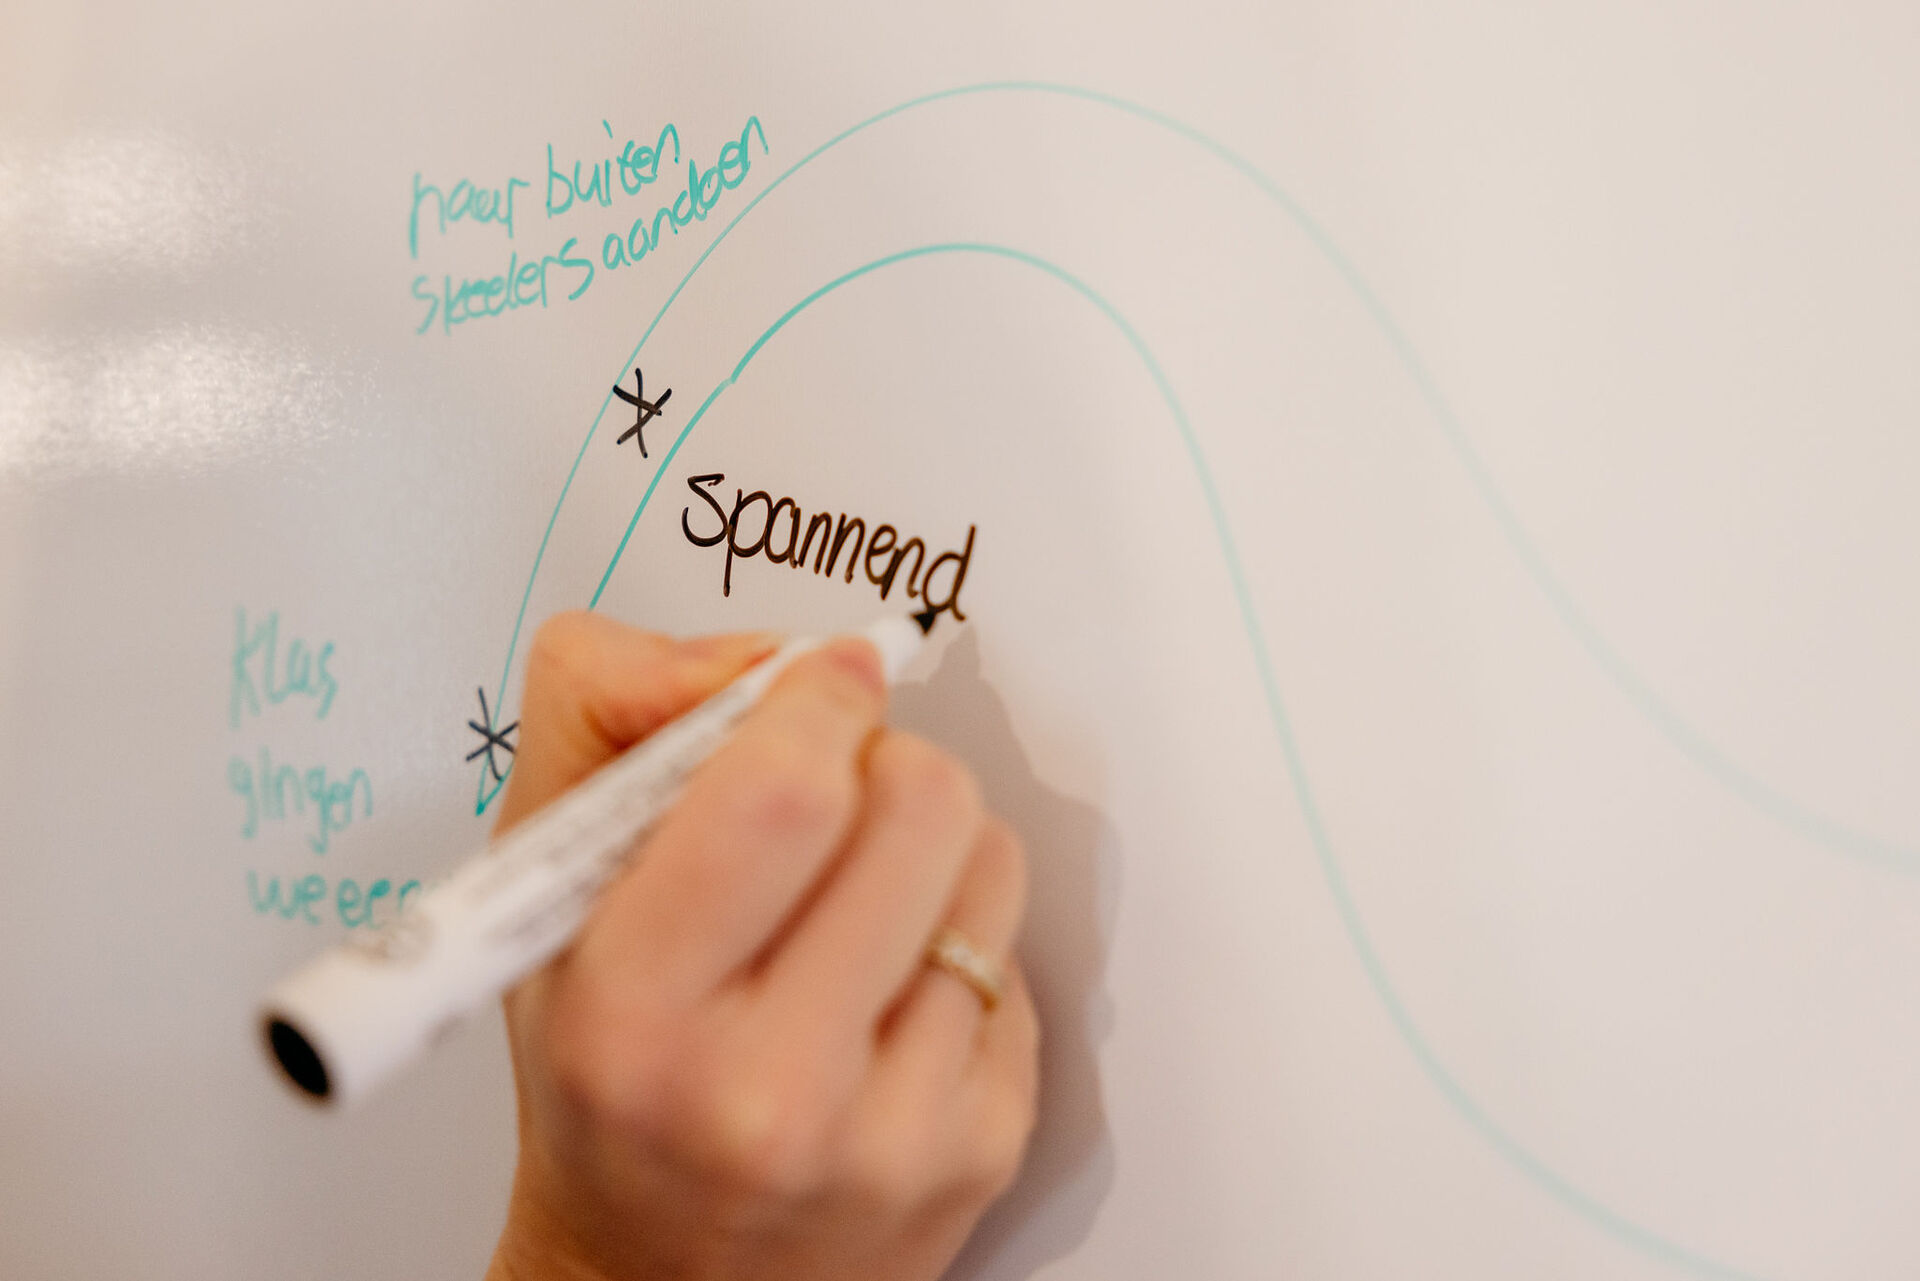 naar buiten
skeelers aandoen
spannend
klas
gingen